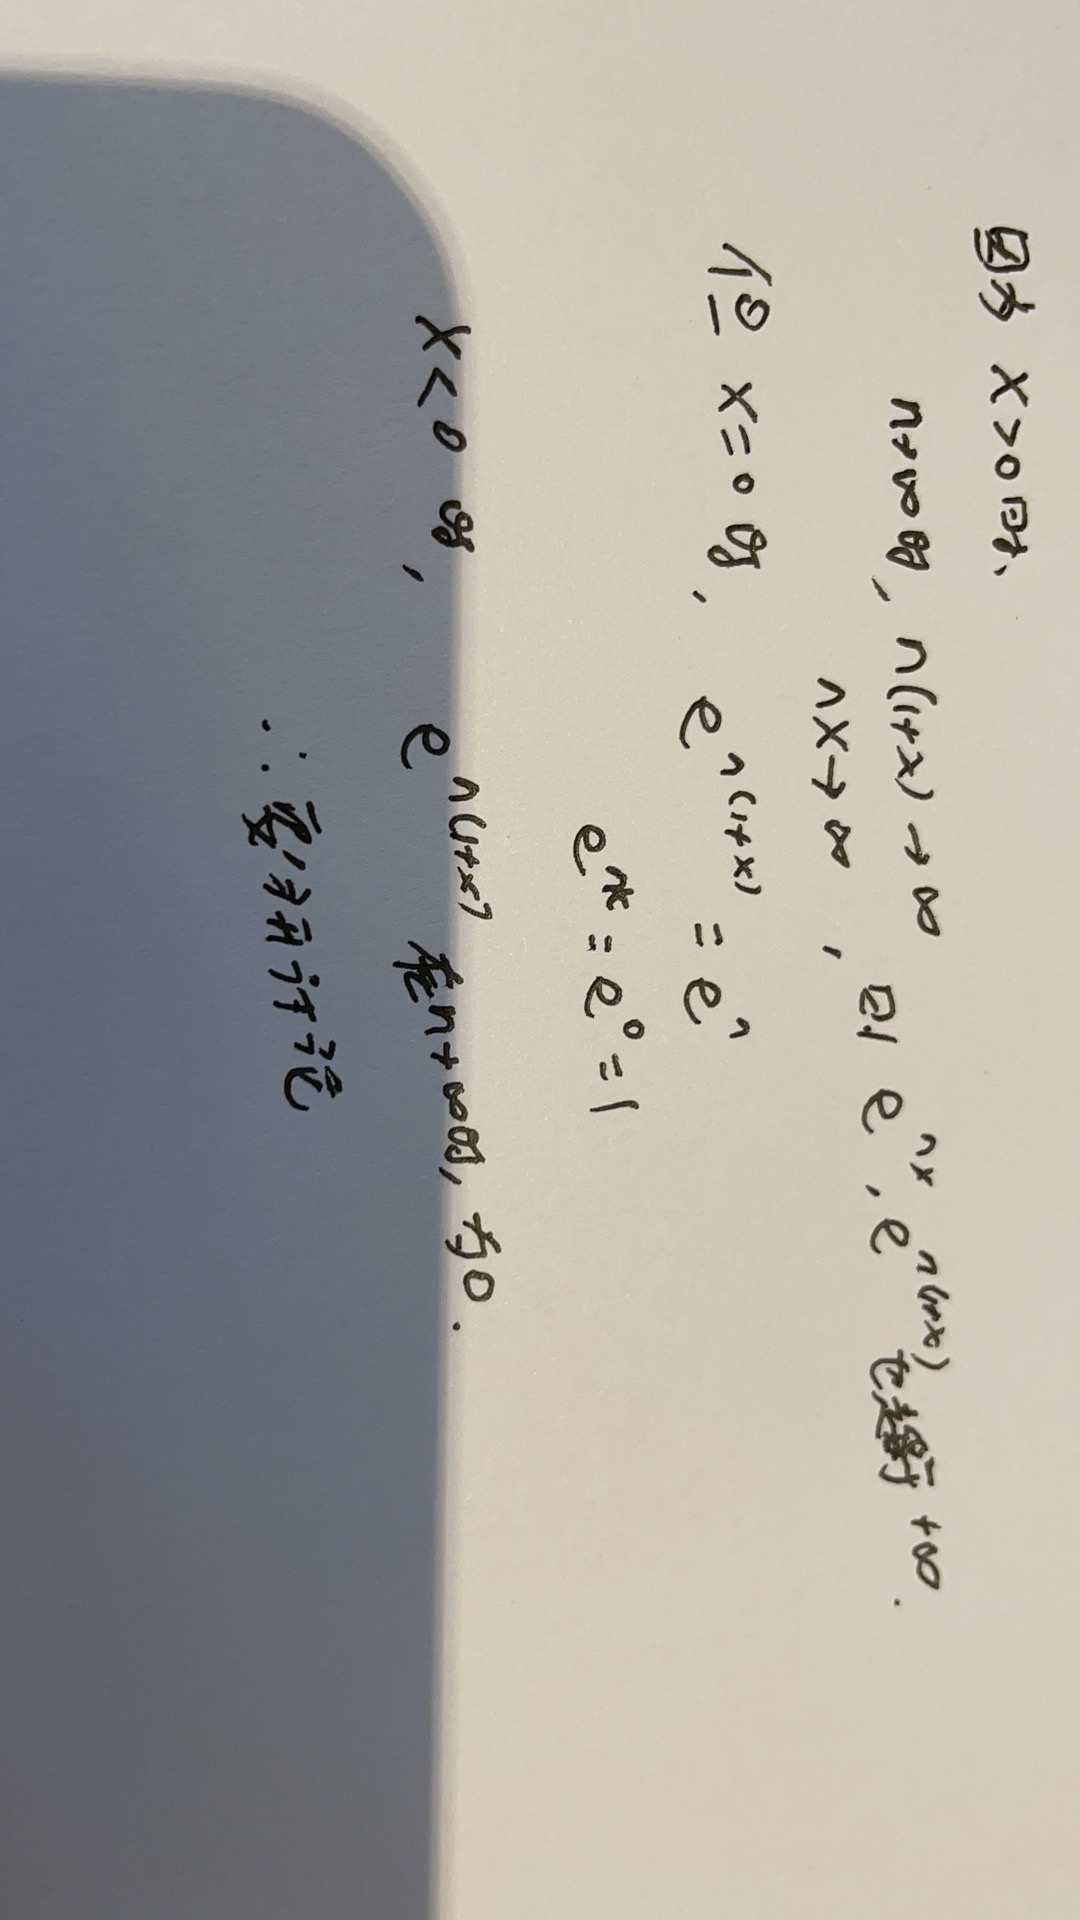 因为 x>0时、
n→∞时, n(1+x)→∞
nx→∞, 则 e^{nx}, e^{n(1+x)} 也趋于 +∞.
但 x=0时, e^{n(1+x)} = e^n
e^{nx} = e^0 = 1
x<0时, e^{n(1+x)} 在n→∞时, 为0.
∴需分开讨论